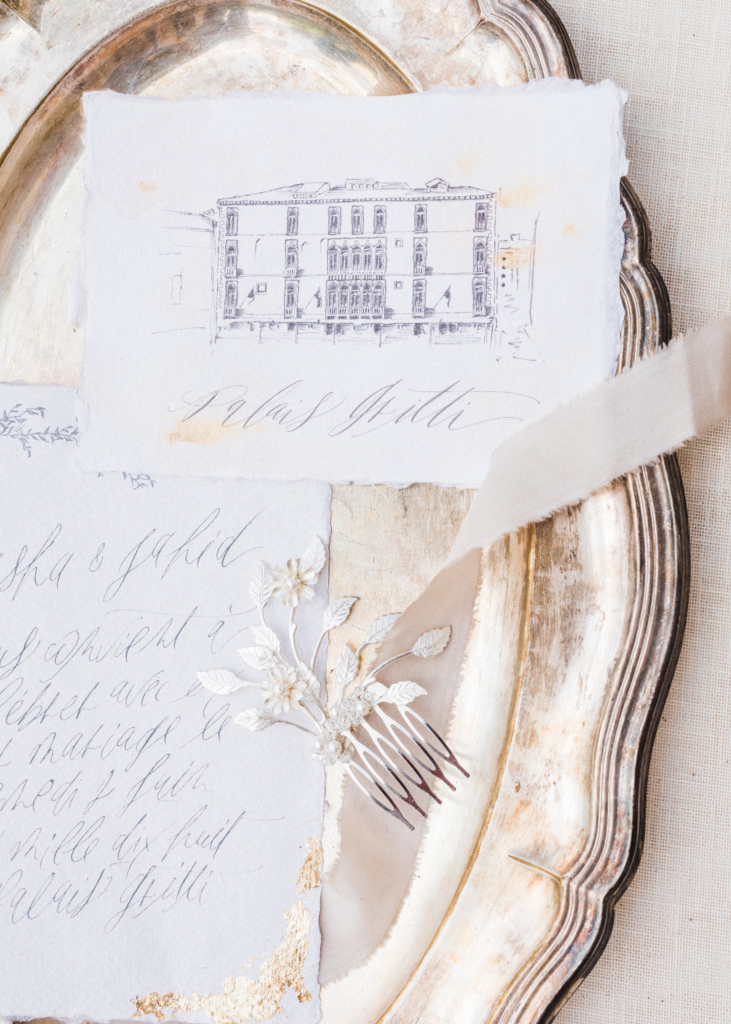 Palais Gritti
sha & Jahid
convient à
avec
mariage le
Juin
mille dix huit
Palais Gritti